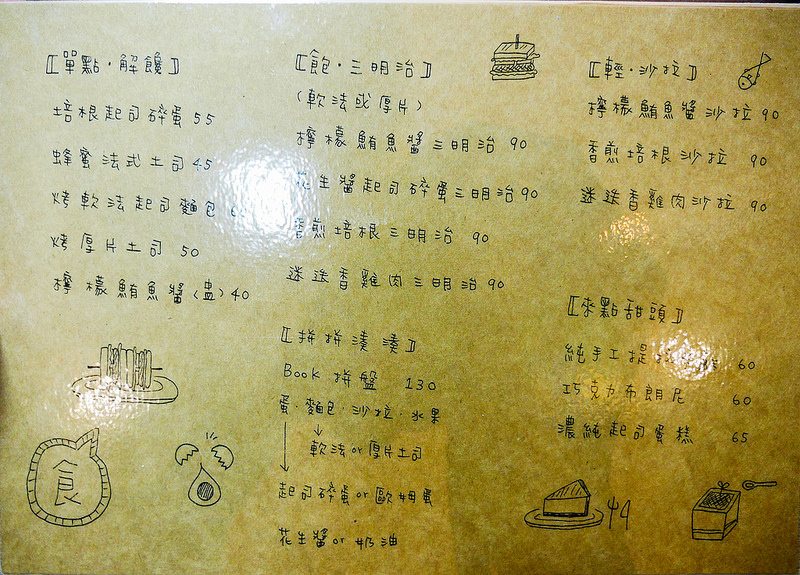 〖單點·解饞〗
培根起司碎蛋 55
蜂蜜法式土司 45
烤軟法起司麵包
烤厚片土司 50
檸檬鮪魚醬(盅) 40
食
〖飽·三明治〗
(軟法或厚片)
檸檬鮪魚醬三明治 90
花生醬起司碎蛋三明治 90
香煎培根三明治 90
迷迭香雞肉三明治 90
〖拼拼湊湊〗
Book 拼盤 130
蛋·麵包·沙拉·水果
軟法or厚片土司
起司碎蛋or歐姆蛋
花生醬or奶油
〖輕·沙拉〗
檸檬鮪魚醬沙拉 90
香煎培根沙拉 90
迷迭香雞肉沙拉 90
〖來點甜頭〗
純手工提 60
巧克力布朗尼 60
濃純起司蛋糕 65